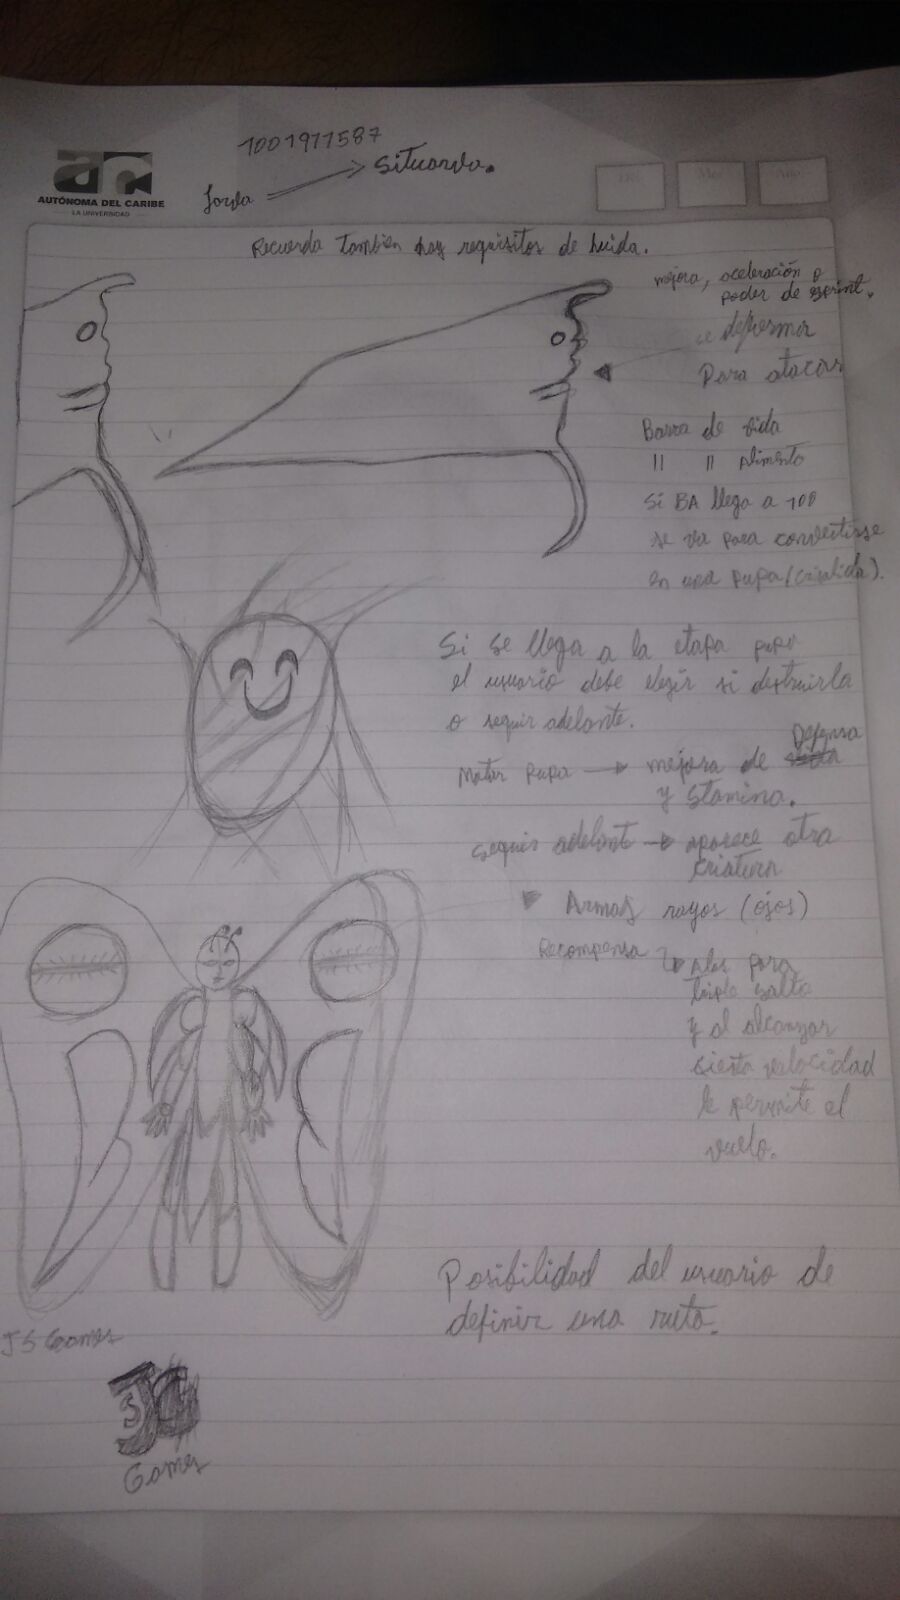 1001911587
AUTÓNOMA DEL CARIBE
LA UNIVERSIDAD
Recuerda también hay requisitos de huida.
mejora, aceleración o
poder de sprint.
deformar
Para atacar
Barra de vida
" " Alimento
Si BA llega a 100
se va para convertirse
en una pupa (crisálida).
Si se llega a la etapa pupa
el usuario debe elegir si destruirla
o seguir adelante.
Matar pupa → mejora de Defensa
y stamina.
seguir adelant → aparece otra
criatura
Armas rayos (ojos)
Recompensa → Alas para
triple salto
y al alcanzar
sierta velocidad
le permite el
vuelo.
Posibilidad del usuario de
definir una ruta.
JS Games
Games